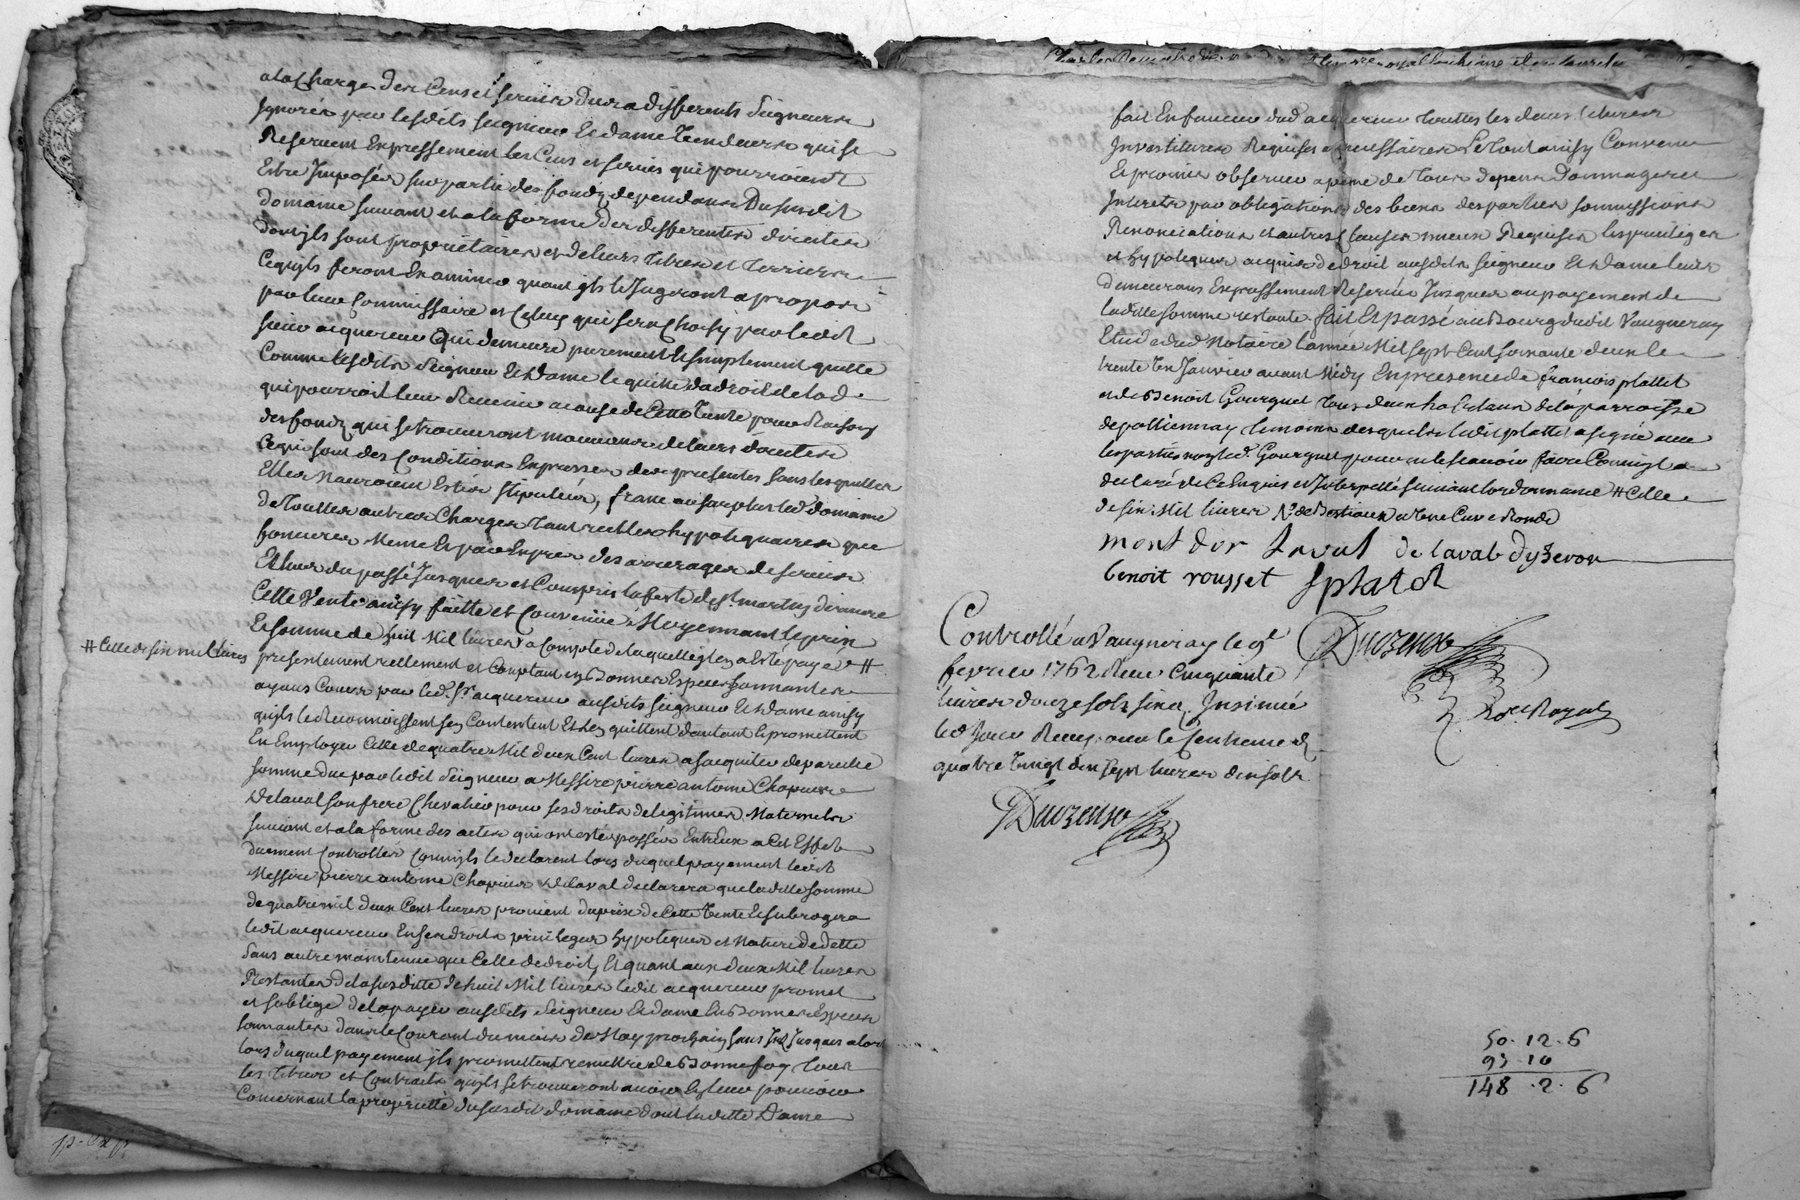 ala Charge des Cens et servis dus a differents Seigneurs
Ignorés par lesdits seigneur et dame vendeurs qui se
Reservent Expressement les Cens et servis qui pourroient
Estre Imposés sur partie des fondz dependans dususdit
domaine suivant et ala forme des differentes directes
dont jls sont propriétaires et de leurs titres et terriers
Ce qu'jls feront Examiner quant jls le Jugeront apropos
par leur Commissaire et Celuy qui sera Choisy par ledit
sieur acquereur qui demeure purement et simplement quitte
Comme lesdits Seigneur et dame le quitte dudroit de lod
qui pourroit leur Revenir acause de Cette vente pour Raison
des fondz qui se trouveront mouvans de leurs directes
Ce qui sont des Conditions Expresses des presentes sans lesquelles
Elles n'auroient Estés stipulées, franc au surplus led. domaine
de touttes autres Charges tant reelles hypotequaires que
foncieres Meme Et par Exprès des arrerages de servis
Et luy du passé Jusques et Compris la feste de St. martin derniere
Cette Vente ainsy faitte et Convenüe Moyennant le prix
Et somme de huit Mil livres a Compte de laquelle jl en a Esté payé #
# Celle de six mil livres
presentement rellement et Comptant en Bonnes Especes sonnantes
ayans Cours par led. Sr. acquereur ausdits seigneur Et dame ainsy
qu'jls le Reconnoissent sen Contentent Et len quittent d'autant Et promettent
En Employer Celle de quatre Mil deux Cent livres a sacquiter de pareille
somme due par ledit Seigneur a Messire pierre antoine Chapuis
de laval son frere Chevalier pour ses droits de legitimes Maternels
suivant et ala forme des actes qui ont estés passés Entr'Eux a Cet Effet
duement Controllés Comm'jls le declarent lors duquel payement ledit
Messire pierre antoine Chapuis de laval declarera que laditte somme
de quatre mil deux Cent livres provient du prix de Cette vente Et subrogera
ledit acquereur En ses droits privileges hypoteques et Nature de dette
sans autre maintenue que Celle de droit, Et quant aux deux Mil livres
Restantes de la susditte de huit Mil livres ledit acquereur promet
et s'oblige de la payer ausdits Seigneur Et dame En Bonnes Especes
sonnantes dans le Courant du mois de May prochain sans Jnt. Jusques alors
lors duquel payement jls promettent remettre de Bonne foy tous
les titres et Contracts qu'jls se trouveront avoir En leur pouvoir
Concernant la propriété du susdit domaine dont laditte Dame
fait En faveur dud. acquereur touttes les devestitures
Investitures Requises et necessaires Le tout ainsy Convenu
Et promis observer a peine de tous depens dommages et
Interets par obligations des biens des parties soumissions
Renonciations et autres Clauses mieux Requises les privileges
et hypoteques acquis de droit ausdits seigneur Et dame leurs
demeurans Expressement Reservés Jusques au payement de
laditte somme restante fait Et passé au Bourg dudit Vaugneray
Etude dud. Notaire l'annee Mil sept Cent soixante deux le
trente Un Janvier avant Midy En presence de françois plattet
et de Benoit Gourguet tous deux habitans de la parroisse
de pollionnay temoins desquels ledit plattet a signé avec
les parties non led. Gourguet pour ne le scavoir faire Comm'jl a
declaré de Ce Enquis et Interpellé suivant lordonnance # Celle
de six Mil livres
mont dor Laval de laval dyzeron
benoit rousset Splatet
Duvzensv
Not. Royal
Controllé a Vaugneray le 9e
fevrier 1762 Reçu Cinquante
livres douze sols six d. Insinué
led. Jour Reçu avec le Centieme d.
quatre vingt dix sept livres dix sols
Duvzensv
50 . 12 . 6
97 . 10
148 . 2 . 6